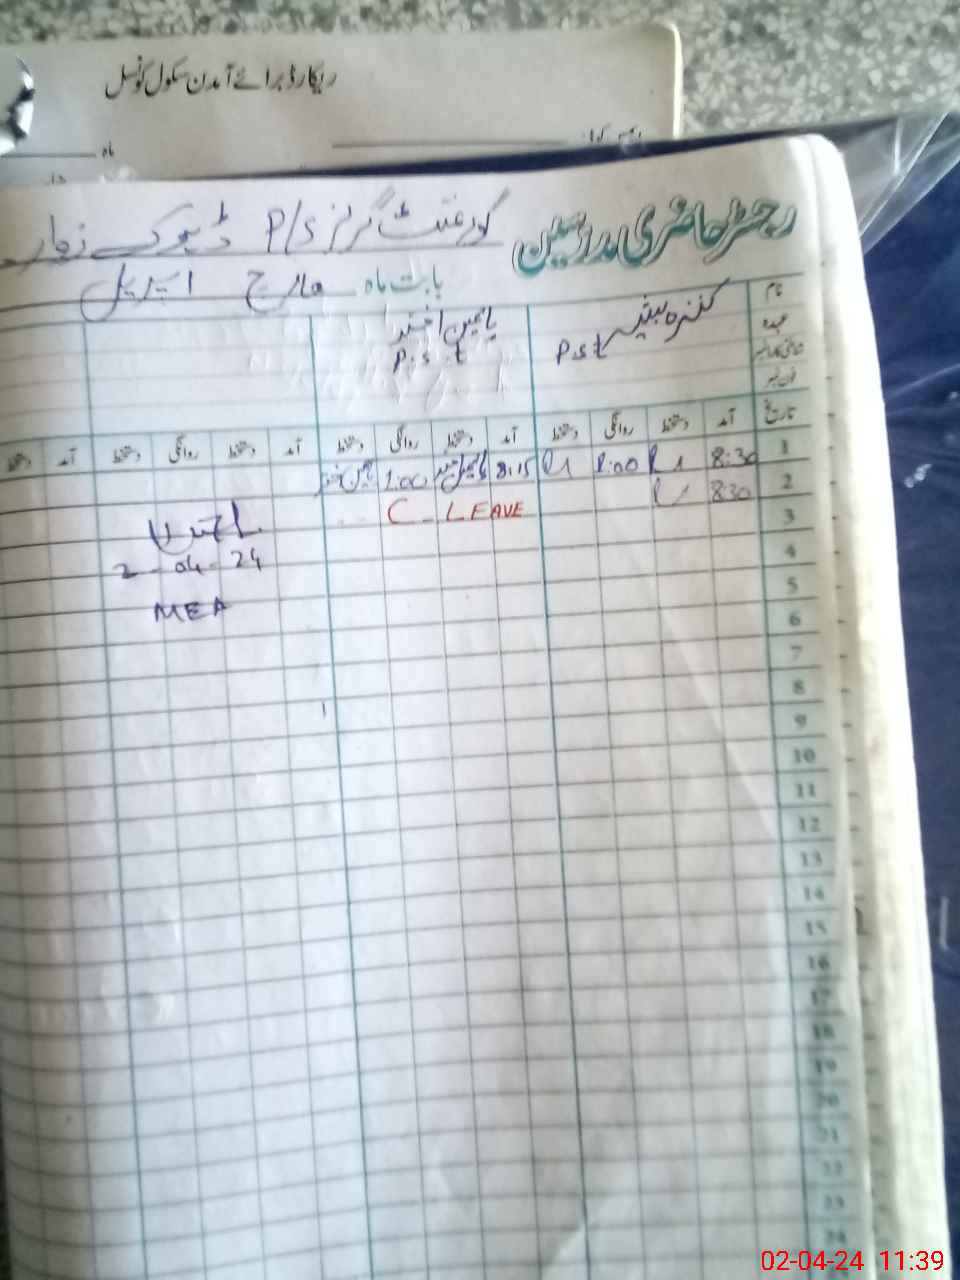 ریکارڈ برائے آمدن سکول کونسل
ماہ
رجسٹر حاضری مدرسین گورنمنٹ گرلز P/S ڈھوک
بابت ماہ مارچ اپریل
نام
عہدہ
فون نمبر
یاسمین اختر
P.s.t
P.s.t
تاریخ آمد دستخط روانگی دستخط آمد دستخط روانگی دستخط آمد دستخط روانگی دستخط آمد دستخط
1 8:30 1:00 8:15 1:00
2 8:30 C - LEAVE
3
4
5
6
7
8
9
10
11
12
13
14
15
16
17
18
19
20
21
22
23
24
2-04-24
MEA
02-04-24 11:39